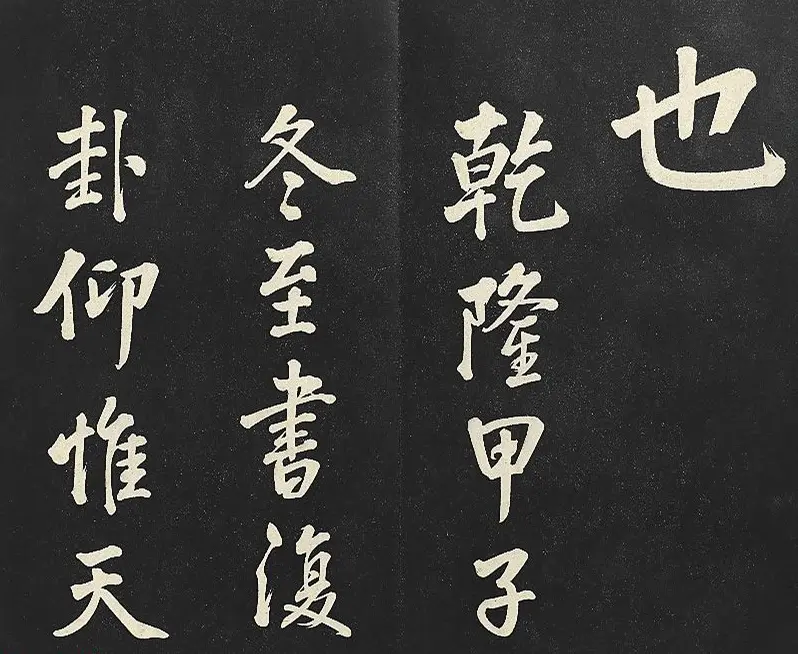 也
乾隆甲子
冬至書復
卦仰惟天